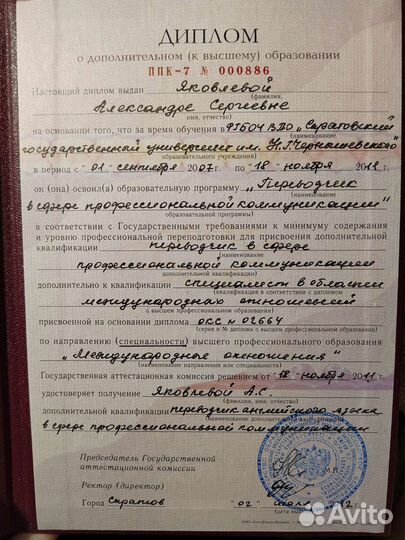 ДИПЛОМ
о дополнительном (к высшему) образовании
ППК-7 № 000886
Настоящий диплом выдан Яковлевой
(фамилия,
Александре Сергеевне
имя, отчество)
на основании того, что за время обучения в ФГБОУ ВПО „Саратовский
(наименование
государственный университет им. Н.Г.Чернышевского"
образовательного учреждения)
в период с "01" сентября 2007 г. по "18" ноября 2011 г.
он (она) освоил(а) образовательную программу „Переводчик
(наименование
в сфере профессиональной коммуникации"
образовательной программы)
в соответствии с Государственными требованиями к минимуму содержания
и уровню профессиональной переподготовки для присвоения дополнительной
квалификации переводчик в сфере
(наименование
профессиональной коммуникации
дополнительной квалификации)
дополнительно к квалификации специалист в области
(квалификация в соответствии с дипломом
международных отношений
о высшем профессиональном образовании)
присвоенной на основании диплома ОКС № 02664
(серия и № диплома о высшем профессиональном образовании)
по направлению (специальности) высшего профессионального образования
„Международные отношения"
(наименование направления или специальности)
Государственная аттестационная комиссия решением от 18 ноября 2011 г.
удостоверяет получение Яковлевой А.С.
(фамилия, имя, отчество)
дополнительной квалификации переводчик английского языка
в сфере профессиональной коммуникации
Председатель Государственной
аттестационной комиссии
М.П.
Ректор (директор)
Город Саратов "02"
Avito